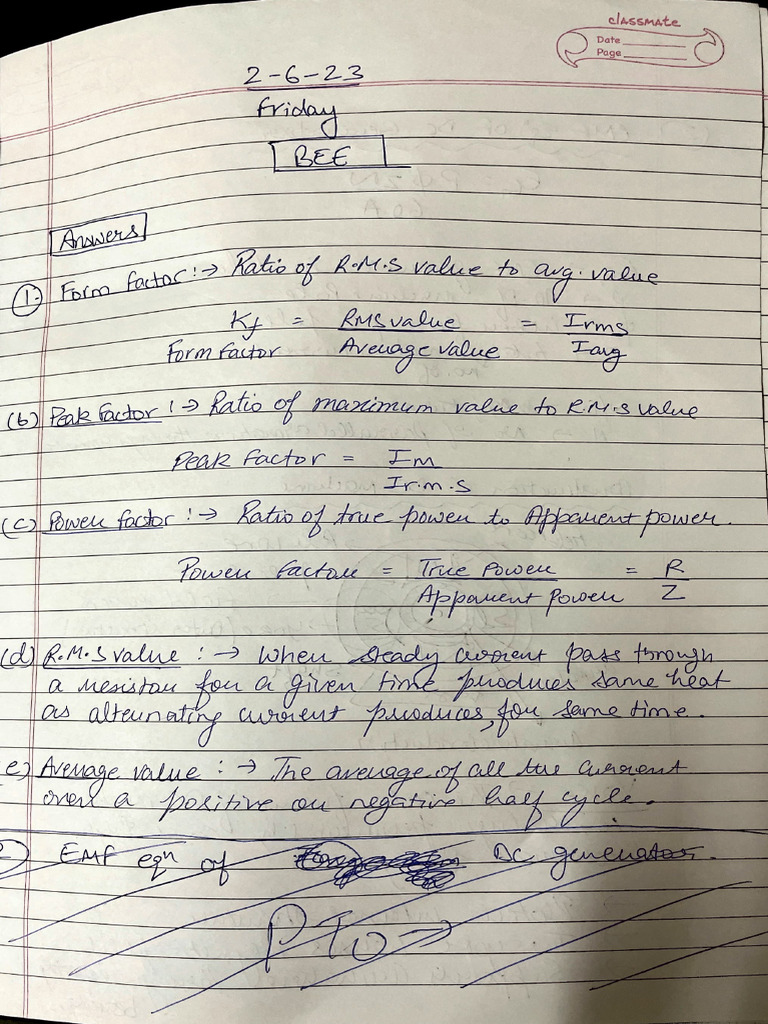 classmate
Date
Page
2-6-23
Friday
BEE
Answers
1. Form factor :→ Ratio of R.M.S value to avg. value
Kf = RMS value = Irms
Form factor Average value Iavg
(b) Peak factor :→ Ratio of maximum value to R.M.S value
Peak Factor = Im
Ir.m.s
(c) Power factor :→ Ratio of true power to Apparent power.
Power factor = True Power = R
Apparent Power Z
(d) R.M.S value :→ When steady current pass through
a resistor for a given time produces same heat
as alternating current produces, for same time.
e) Average value :→ The average of all the current
over a positive or negative half cycle.
2 EMF eqn of DC generator.
PTO →